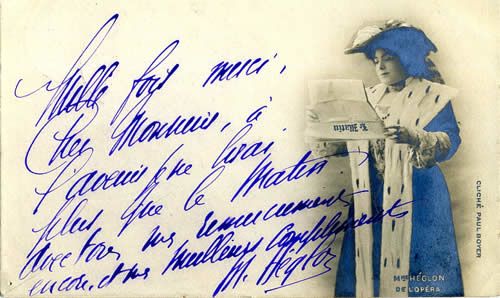 Mille fois merci,
Cher Monsieur, à
l'avenir je ne lirai
plus que le Matin
avec tous mes remerciements
encore, et mes meilleurs compliments
M. Héglon
Le Matin
CLICHÉ PAUL BOYER
Mme HÉGLON
DE L'OPÉRA